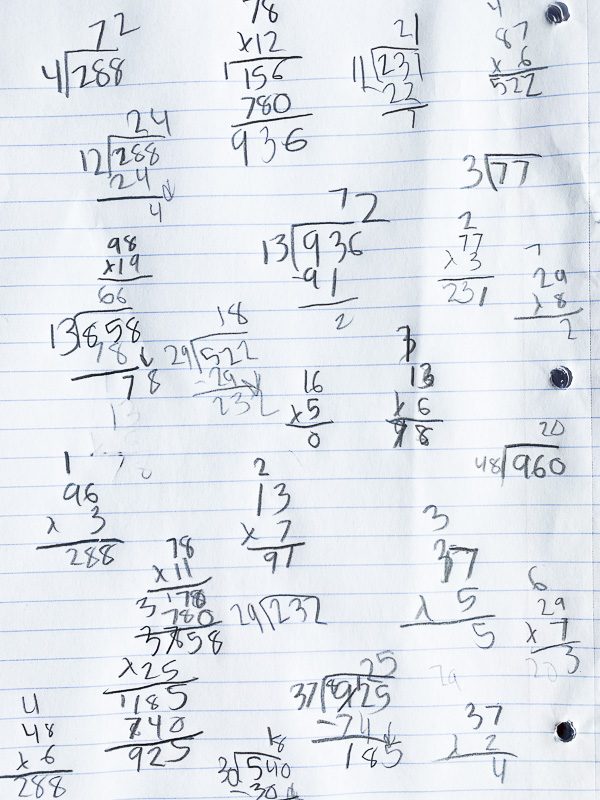 72
4)288
78
x12
1156
780
936
21
11)231
22
1
4
87
x 6
522
24
12)288
24
4
3)77
98
x19
72
13)936
-91
2
2
77
x 3
231
7
29
x 8
2
66
13)858
78
78
18
29)522
-29
232
16
x5
0
13
x 6
98
20
48)960
1
96
x 3
288
2
13
x 7
91
3
37
x 5
5
78
x11
780
858
29)232
6
29
x 7
3
x25
1185
740
925
25
37)925
-74
185
37
x 2
4
4
48
x 6
288
18
30)540
-30